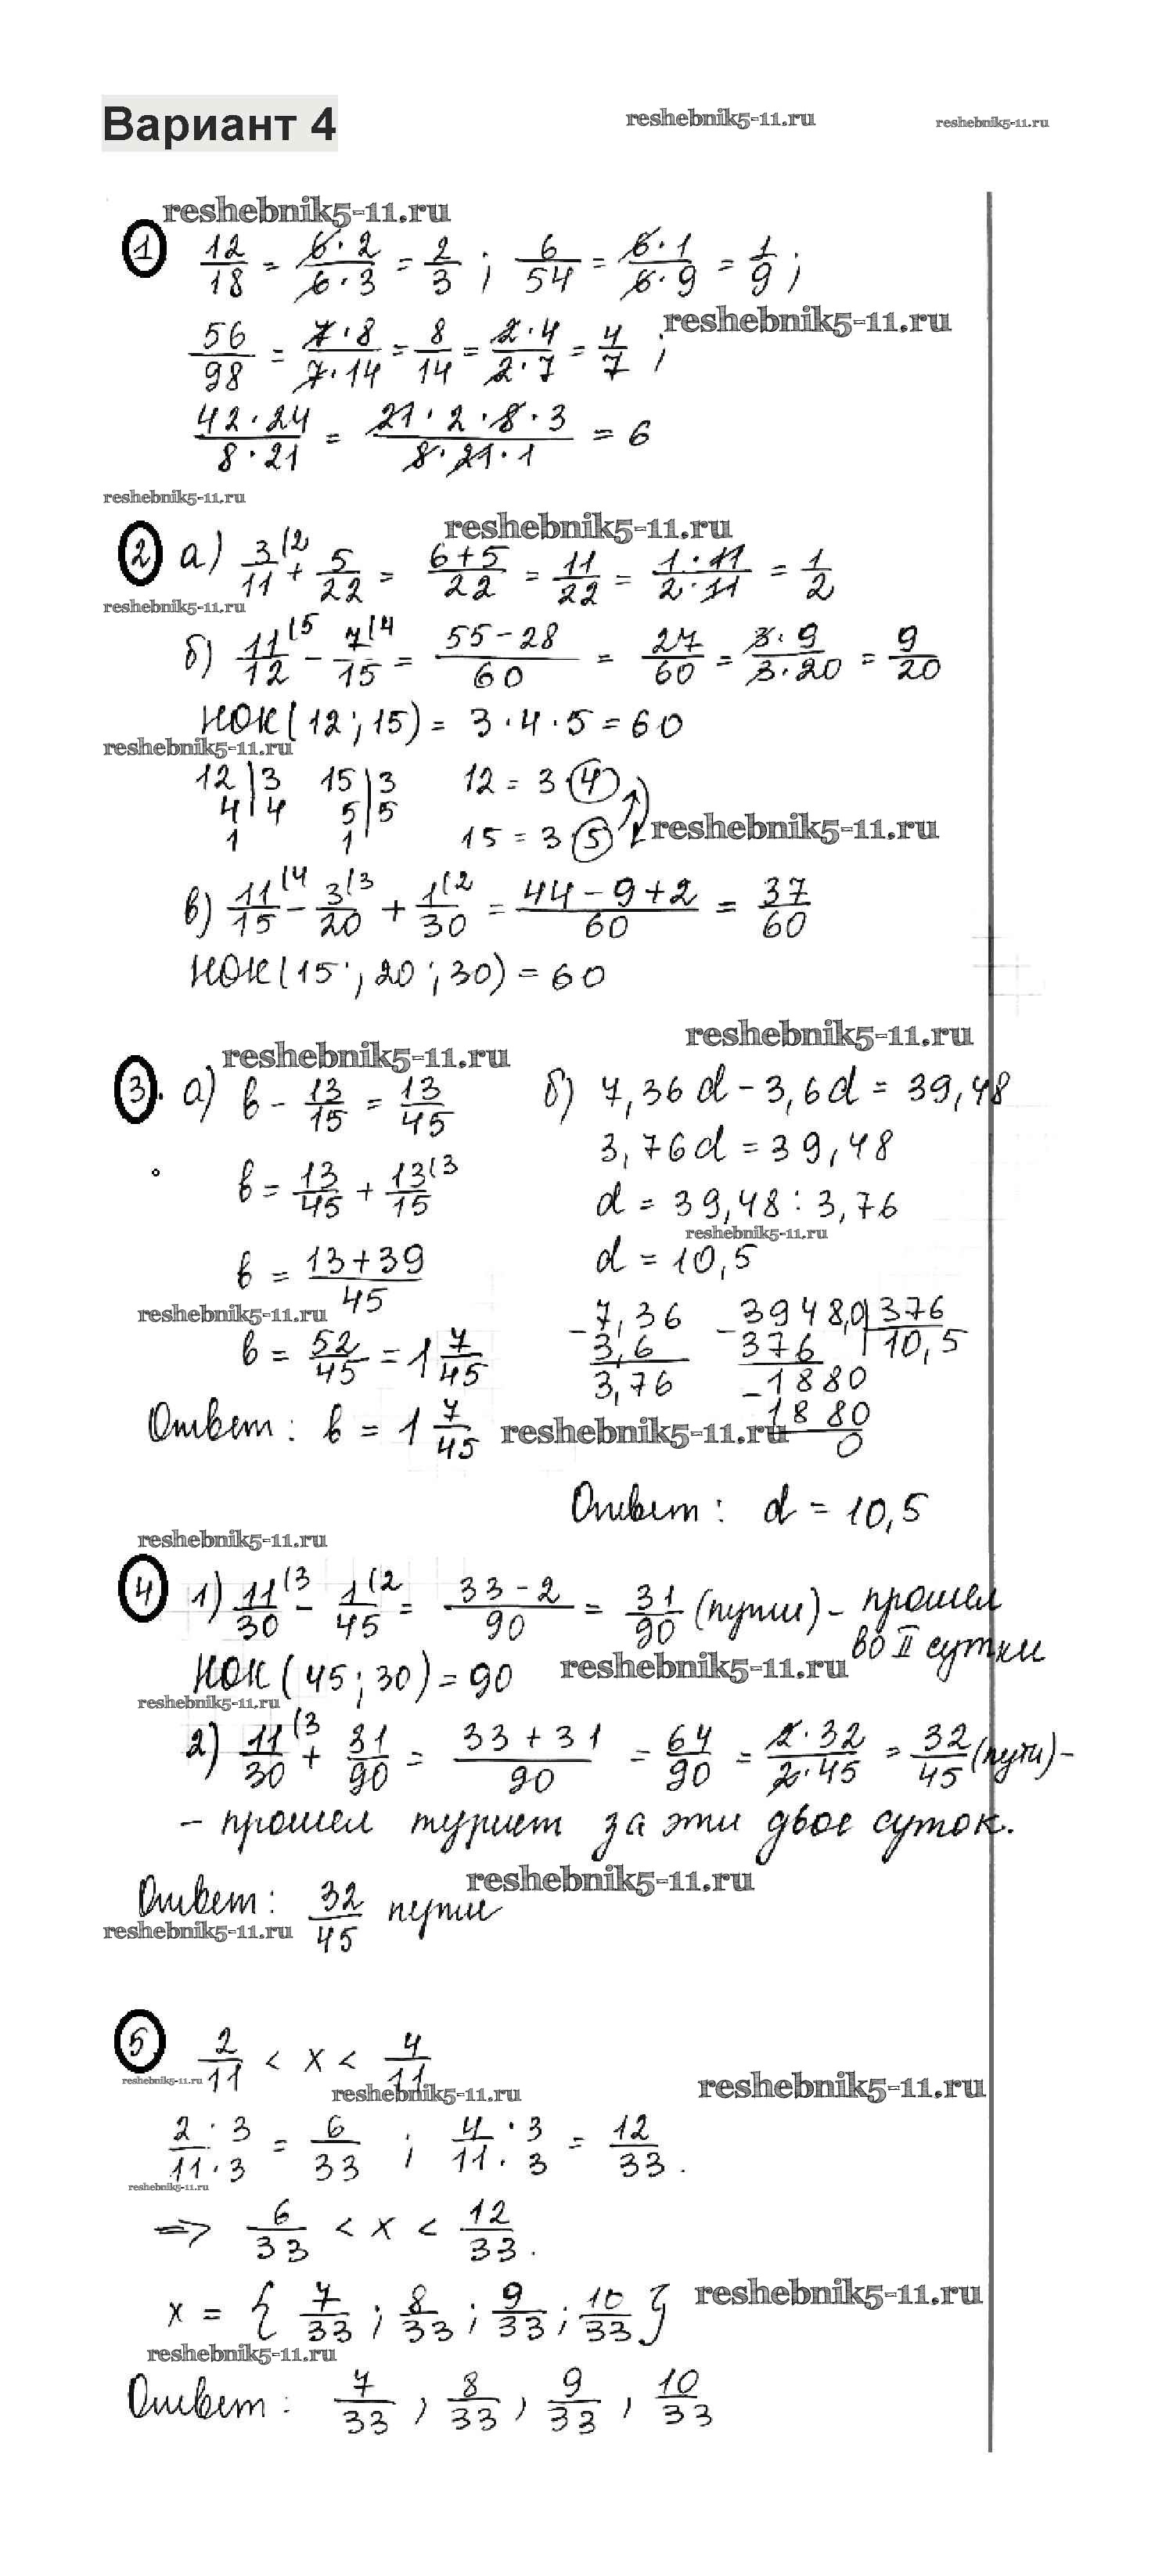 Вариант 4
reshebnik5-11.ru
reshebnik5-11.ru
reshebnik5-11.ru
1 12/18 = 6·2/6·3 = 2/3 ; 6/54 = 6·1/6·9 = 1/9 ;
reshebnik5-11.ru
56/98 = 7·8/7·14 = 8/14 = 2·4/2·7 = 4/7 ;
42·24/8·21 = 21·2·8·3/8·21·1 = 6
reshebnik5-11.ru
reshebnik5-11.ru
2 а) 3/11 (2 + 5/22 = 6+5/22 = 11/22 = 1·11/2·11 = 1/2
reshebnik5-11.ru
б) 11/12 (5 - 7/15 (4 = 55-28/60 = 27/60 = 3·9/3·20 = 9/20
НОК(12;15) = 3·4·5 = 60
reshebnik5-11.ru
12|3 15|3 12 = 3 4
4|4 5|5
1 1 15 = 3 5
reshebnik5-11.ru
в) 11/15 (4 - 3/20 (3 + 1/30 (2 = 44-9+2/60 = 37/60
НОК(15;20;30) = 60
reshebnik5-11.ru
reshebnik5-11.ru
3. а) в - 13/15 = 13/45
в = 13/45 + 13/15 (3
в = 13+39/45
reshebnik5-11.ru
в = 52/45 = 1 7/45
Ответ: в = 1 7/45
reshebnik5-11.ru
б) 7,36d - 3,6d = 39,48
3,76d = 39,48
d = 39,48 : 3,76
reshebnik5-11.ru
d = 10,5
-7,36 -3948,0|376
3,6 376 10,5
3,76 -1880
1880
0
Ответ: d = 10,5
reshebnik5-11.ru
4 1) 11/30 (3 - 1/45 (2 = 33-2/90 = 31/90 (пути) - прошел
во II сутки
НОК(45;30) = 90
reshebnik5-11.ru
reshebnik5-11.ru
2) 11/30 (3 + 31/90 = 33+31/90 = 64/90 = 2·32/2·45 = 32/45 (пути) -
- прошел турист за эти двое суток.
reshebnik5-11.ru
Ответ: 32/45 пути
reshebnik5-11.ru
5 2/11 < x < 4/11
reshebnik5-11.ru
reshebnik5-11.ru
reshebnik5-11.ru
2·3/11·3 = 6/33 ; 4·3/11·3 = 12/33.
reshebnik5-11.ru
=> 6/33 < x < 12/33.
x = { 7/33 ; 8/33 ; 9/33 ; 10/33 }
reshebnik5-11.ru
reshebnik5-11.ru
Ответ: 7/33 , 8/33 , 9/33 , 10/33